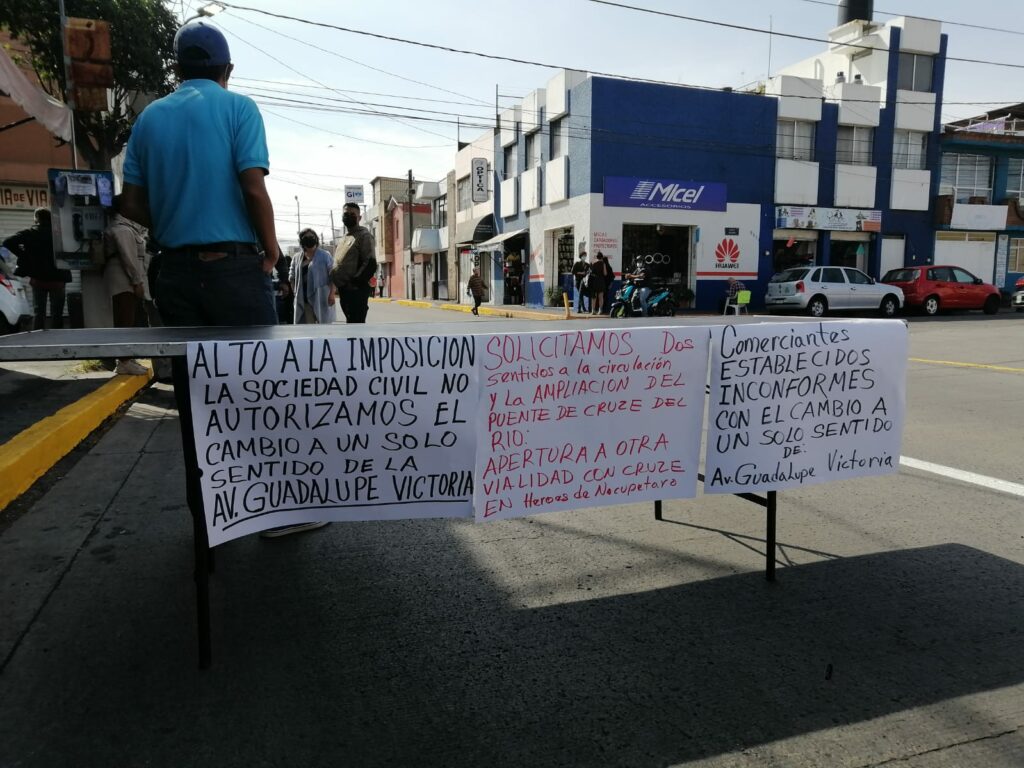 ALTO A LA IMPOSICION
LA SOCIEDAD CIVIL NO
AUTORIZAMOS EL
CAMBIO A UN SOLO
SENTIDO DE LA
AV. GUADALUPE VICTORIA
SOLICITAMOS Dos
sentidos a la circulación
y la AMPLIACION DEL
PUENTE DE CRUZE DEL
RIO:
APERTURA A OTRA
VIALIDAD CON CRUZE
EN Heroes de Nocupetaro
Comerciantes
ESTABLECIDOS
INCONFORMES
CON EL CAMBIO A
UN SOLO SENTIDO
DE:
Av. Guadalupe Victoria
MIcel
ACCESORIOS
HUAWEI
OPTICA